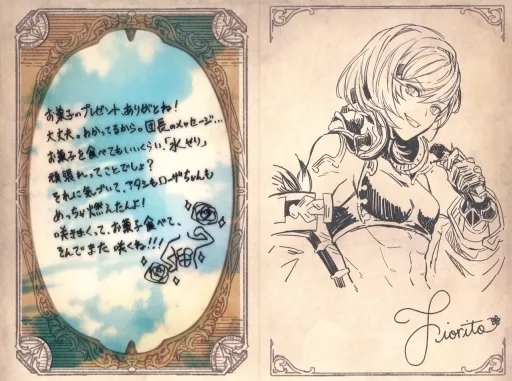 お菓子のプレゼント、ありがとね!
大丈夫。わかってるから。団長のメッセージ…
お菓子を食べてもいいくらい、「水やり」
頑張れってことでしょ?
それに気づいて、アタシもローザちゃんも
めっちゃ燃えたんよ!
咲きまくって、お菓子食べて、
そんでまた 咲くね!!!
Fiorito